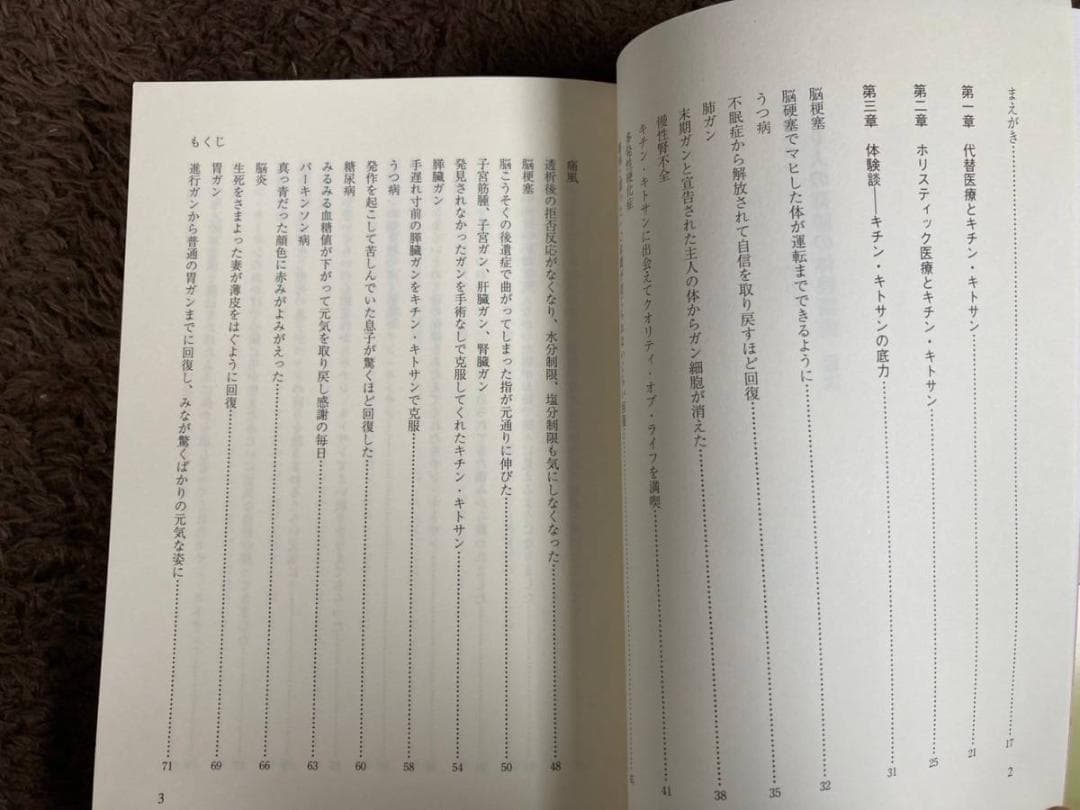 まえがき……………17
第一章 代替医療とキチン・キトサン……………21
第二章 ホリスティック医療とキチン・キトサン……………25
第三章 体験談――キチン・キトサンの底力……………31
脳梗塞
脳硬塞でマヒした体が運転までできるように……………32
うつ病
不眠症から解放されて自信を取り戻すほど回復……………35
肺ガン
末期ガンと宣告された主人の体からガン細胞が消えた……………38
慢性腎不全
キチン・キトサンに出会えてクオリティ・オブ・ライフを満喫……………41
多発性硬化症
2
痛風
透析後の拒否反応がなくなり、水分制限、塩分制限も気にしなくなった……………48
脳梗塞
脳こうそくの後遺症で曲がってしまった指が元通りに伸びた……………50
子宮筋腫、子宮ガン、肝臓ガン、腎臓ガン
発見されなかったガンを手術なしで克服してくれたキチン・キトサン……………54
膵臓ガン
手遅れ寸前の膵臓ガンをキチン・キトサンで克服……………58
うつ病
発作を起こして苦しんでいた息子が驚くほど回復した……………60
糖尿病
みるみる血糖値が下がって元気を取り戻し感謝の毎日……………63
パーキンソン病
真っ青だった顔色に赤みがよみがえった……………66
脳炎
生死をさまよった妻が薄皮をはぐように回復……………69
胃ガン
進行ガンから普通の胃ガンまでに回復し、みなが驚くばかりの元気な姿に……………71
もくじ
3